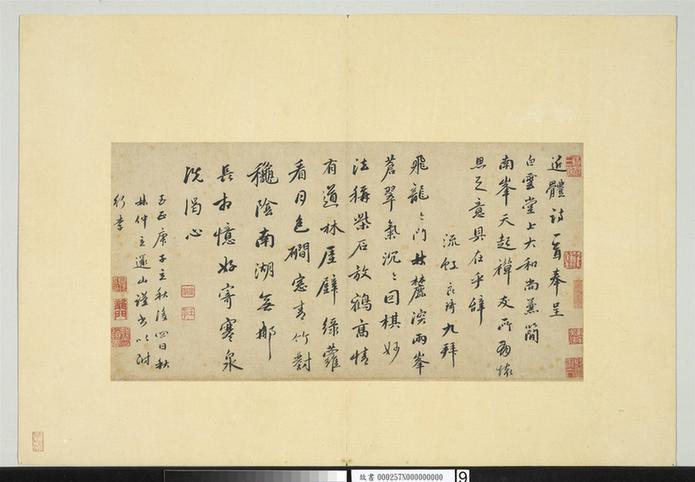 近體詩一首奉呈
白雲堂上大和尚兼簡
南峯天起禪友所懷
思之意具在乎辭
流虹良琦九拜
飛龍〻門林麓深兩峯
蒼翠氣沉〻棋妙
法稱柴石放鶴高情
有道林屋壁綠蘿
看月色磵窓青竹對
穐陰南湖無那
長相憶好寄寒泉
洗渴心
至正庚子立秋後四日秋
林仲立還山謹書以附
行李
故書 000257N000000000
9